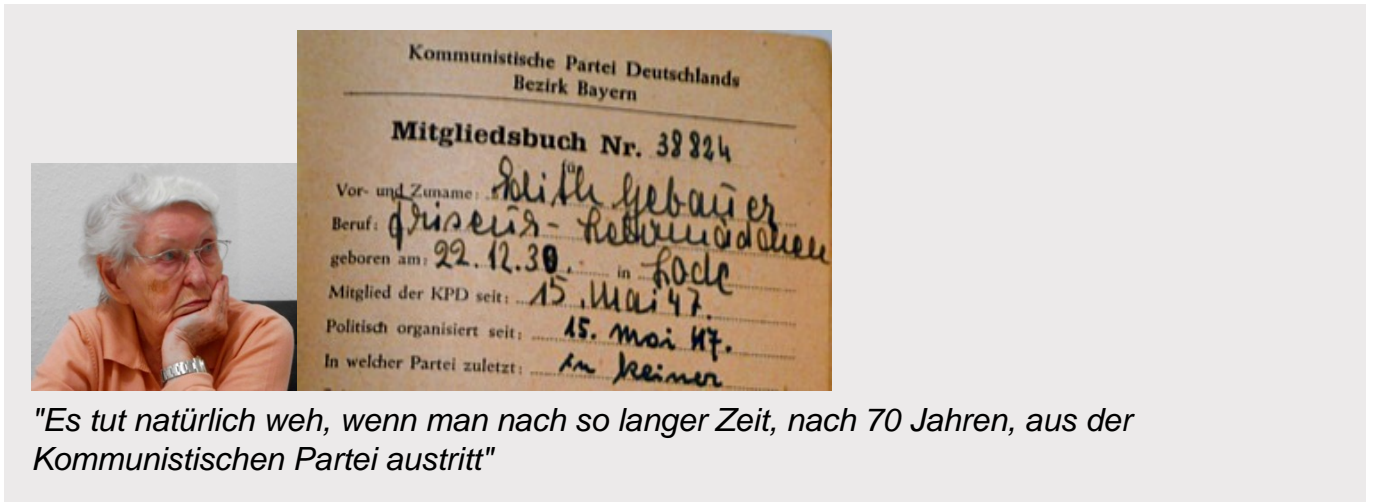 Kommunistische Partei Deutschlands
Bezirk Bayern
Mitgliedsbuch Nr. 38824
für
Vor- und Zuname: Edith Gebauer
Beruf: Friseur-Lehrmädchen
geboren am: 22.12.30. in Lode
Mitglied der KPD seit: 15. Mai 47.
Politisch organisiert seit: 15. Mai 47.
In welcher Partei zuletzt: in keiner
"Es tut natürlich weh, wenn man nach so langer Zeit, nach 70 Jahren, aus der
Kommunistischen Partei austritt"